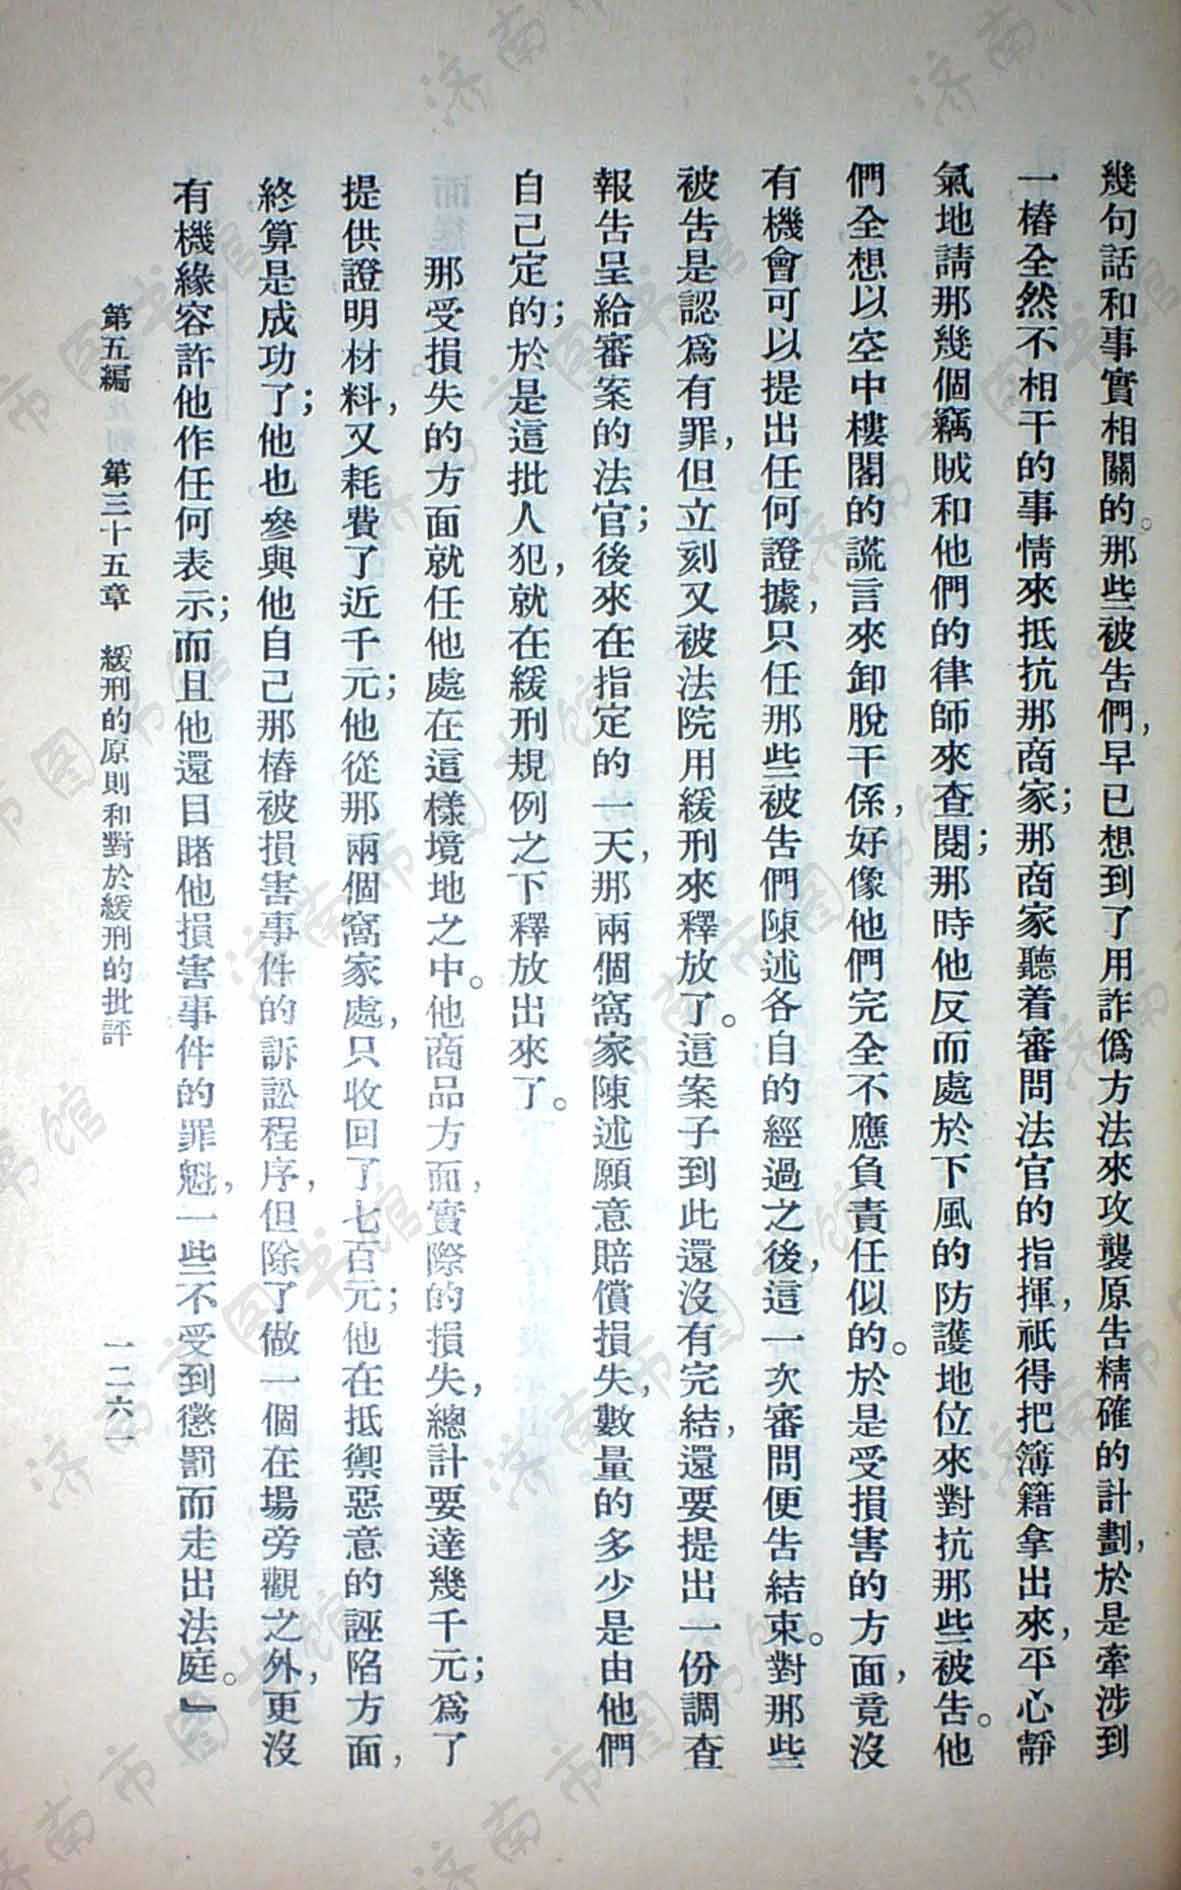 幾句話和事實相關的。那些被告們，早已想到了用詐僞方法來攻襲原告精確的計劃，於是牽涉到
一樁全然不相干的事情來抵抗那商家；那商家聽着審問法官的指揮，祇得把簿籍拿出來，平心靜
氣地請那幾個竊賊和他們的律師來查閱；那時他反而處於下風的防護地位來對抗那些被告。他
們全想以空中樓閣的謊言來卸脫干係，好像他們完全不應負責任似的。於是受損害的方面，竟沒
有機會可以提出任何證據，只任那些被告們陳述各自的經過之後，這一次審問便告結束。對那些
被告是認爲有罪，但立刻又被法院用緩刑來釋放了。這案子到此還沒有完結，還要提出一份調查
報告呈給審案的法官；後來在指定的一天，那兩個窩家陳述願意賠償損失，數量的多少是由他們
自己定的；於是這批人犯，就在緩刑規例之下釋放出來了。
那受損失的方面就任他處在這樣境地之中。他商品方面，實際的損失，總計要達幾千元；爲了
提供證明材料，又耗費了近千元；他從那兩個窩家處，只收回了七百元；他在抵禦惡意的誣陷方面，
終算是成功了；他也參與他自己那樁被損害事件的訴訟程序，但除了做一個在場旁觀之外，更沒
有機緣容許他作任何表示；而且他還目睹他損害事件的罪魁，一些不受到懲罰而走出法庭。』
第五編 第三十五章 緩刑的原則和對於緩刑的批評 一二六一
济南市图书馆